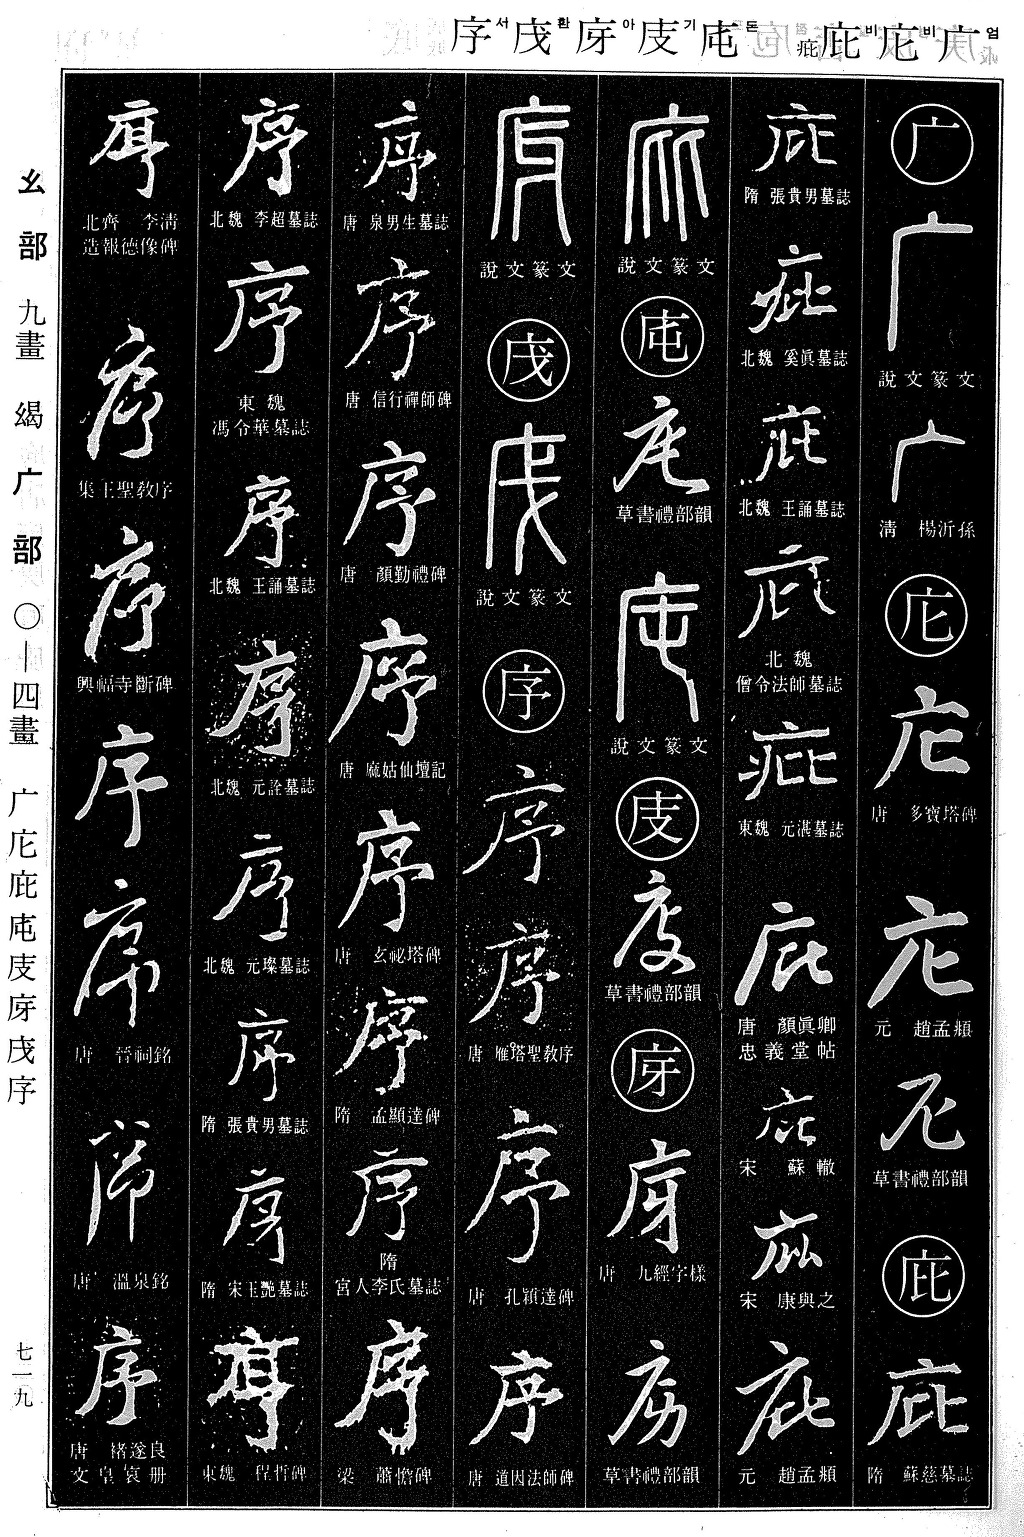 广엄 庀비 庇비 疵 庉돈 庋기 庌아 戌환 序서
广
广
說文篆文
广
清 楊沂孫
庀
庀
唐 多寶塔碑
庀
元 趙孟頫
庀
草書禮部韻
庇
庇
隋 蘇慈墓誌
庇
隋 張貴男墓誌
庇
北魏 奚眞墓誌
庇
北魏 王誦墓誌
庇
北魏
僧令法師墓誌
庇
東魏 元湛墓誌
庇
唐 顏眞卿
忠義堂帖
庇
宋 蘇轍
庇
宋 康與之
庇
元 趙孟頫
說文篆文
庉
庉
草書禮部韻
庉
說文篆文
庋
庋
草書禮部韻
庌
庌
唐 九經字樣
庌
草書禮部韻
說文篆文
說文篆文
序
序
序
唐 雁塔聖教序
序
唐 孔穎達碑
序
唐 道因法師碑
序
唐 泉男生墓誌
序
唐 信行禪師碑
序
唐 顏勤禮碑
序
唐 麻姑仙壇記
序
唐 玄祕塔碑
序
隋 孟顯達碑
序
隋
宮人李氏墓誌
序
梁 蕭憺碑
序
北魏 李超墓誌
序
東魏
馮令華墓誌
序
北魏 王誦墓誌
序
北魏 元詮墓誌
序
北魏 元璨墓誌
序
隋 張貴男墓誌
序
隋 宋玉艷墓誌
序
東魏 程哲碑
序
北齊 李清
造報德像碑
序
集王聖教序
序
興福寺斷碑
序
序
唐 晉祠銘
序
唐 溫泉銘
序
唐 褚遂良
文皇哀册
幺部 九畫 㡤 广部 〇—四畫 广庀庇庉庋庌戌序
七一九